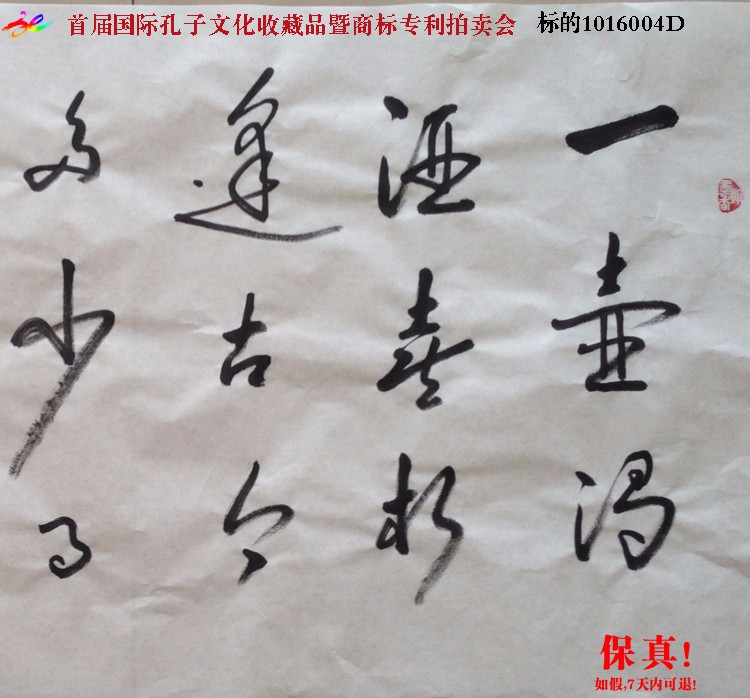 首届国际孔子文化收藏品暨商标专利拍卖会 标的1016004D
一壶浊
酒喜相
逢古今
多少事
保真!
如假,7天内可退!